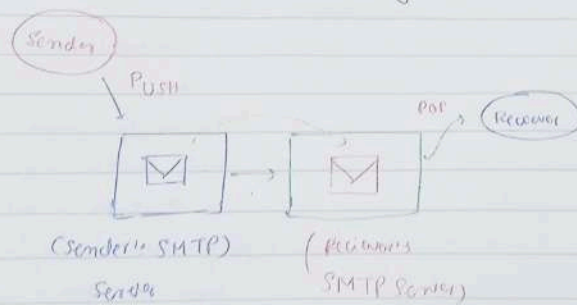 Sender
PUSH
POP
Receiver
(Sender's SMTP)
Server
(Reciever's
SMTP Server)